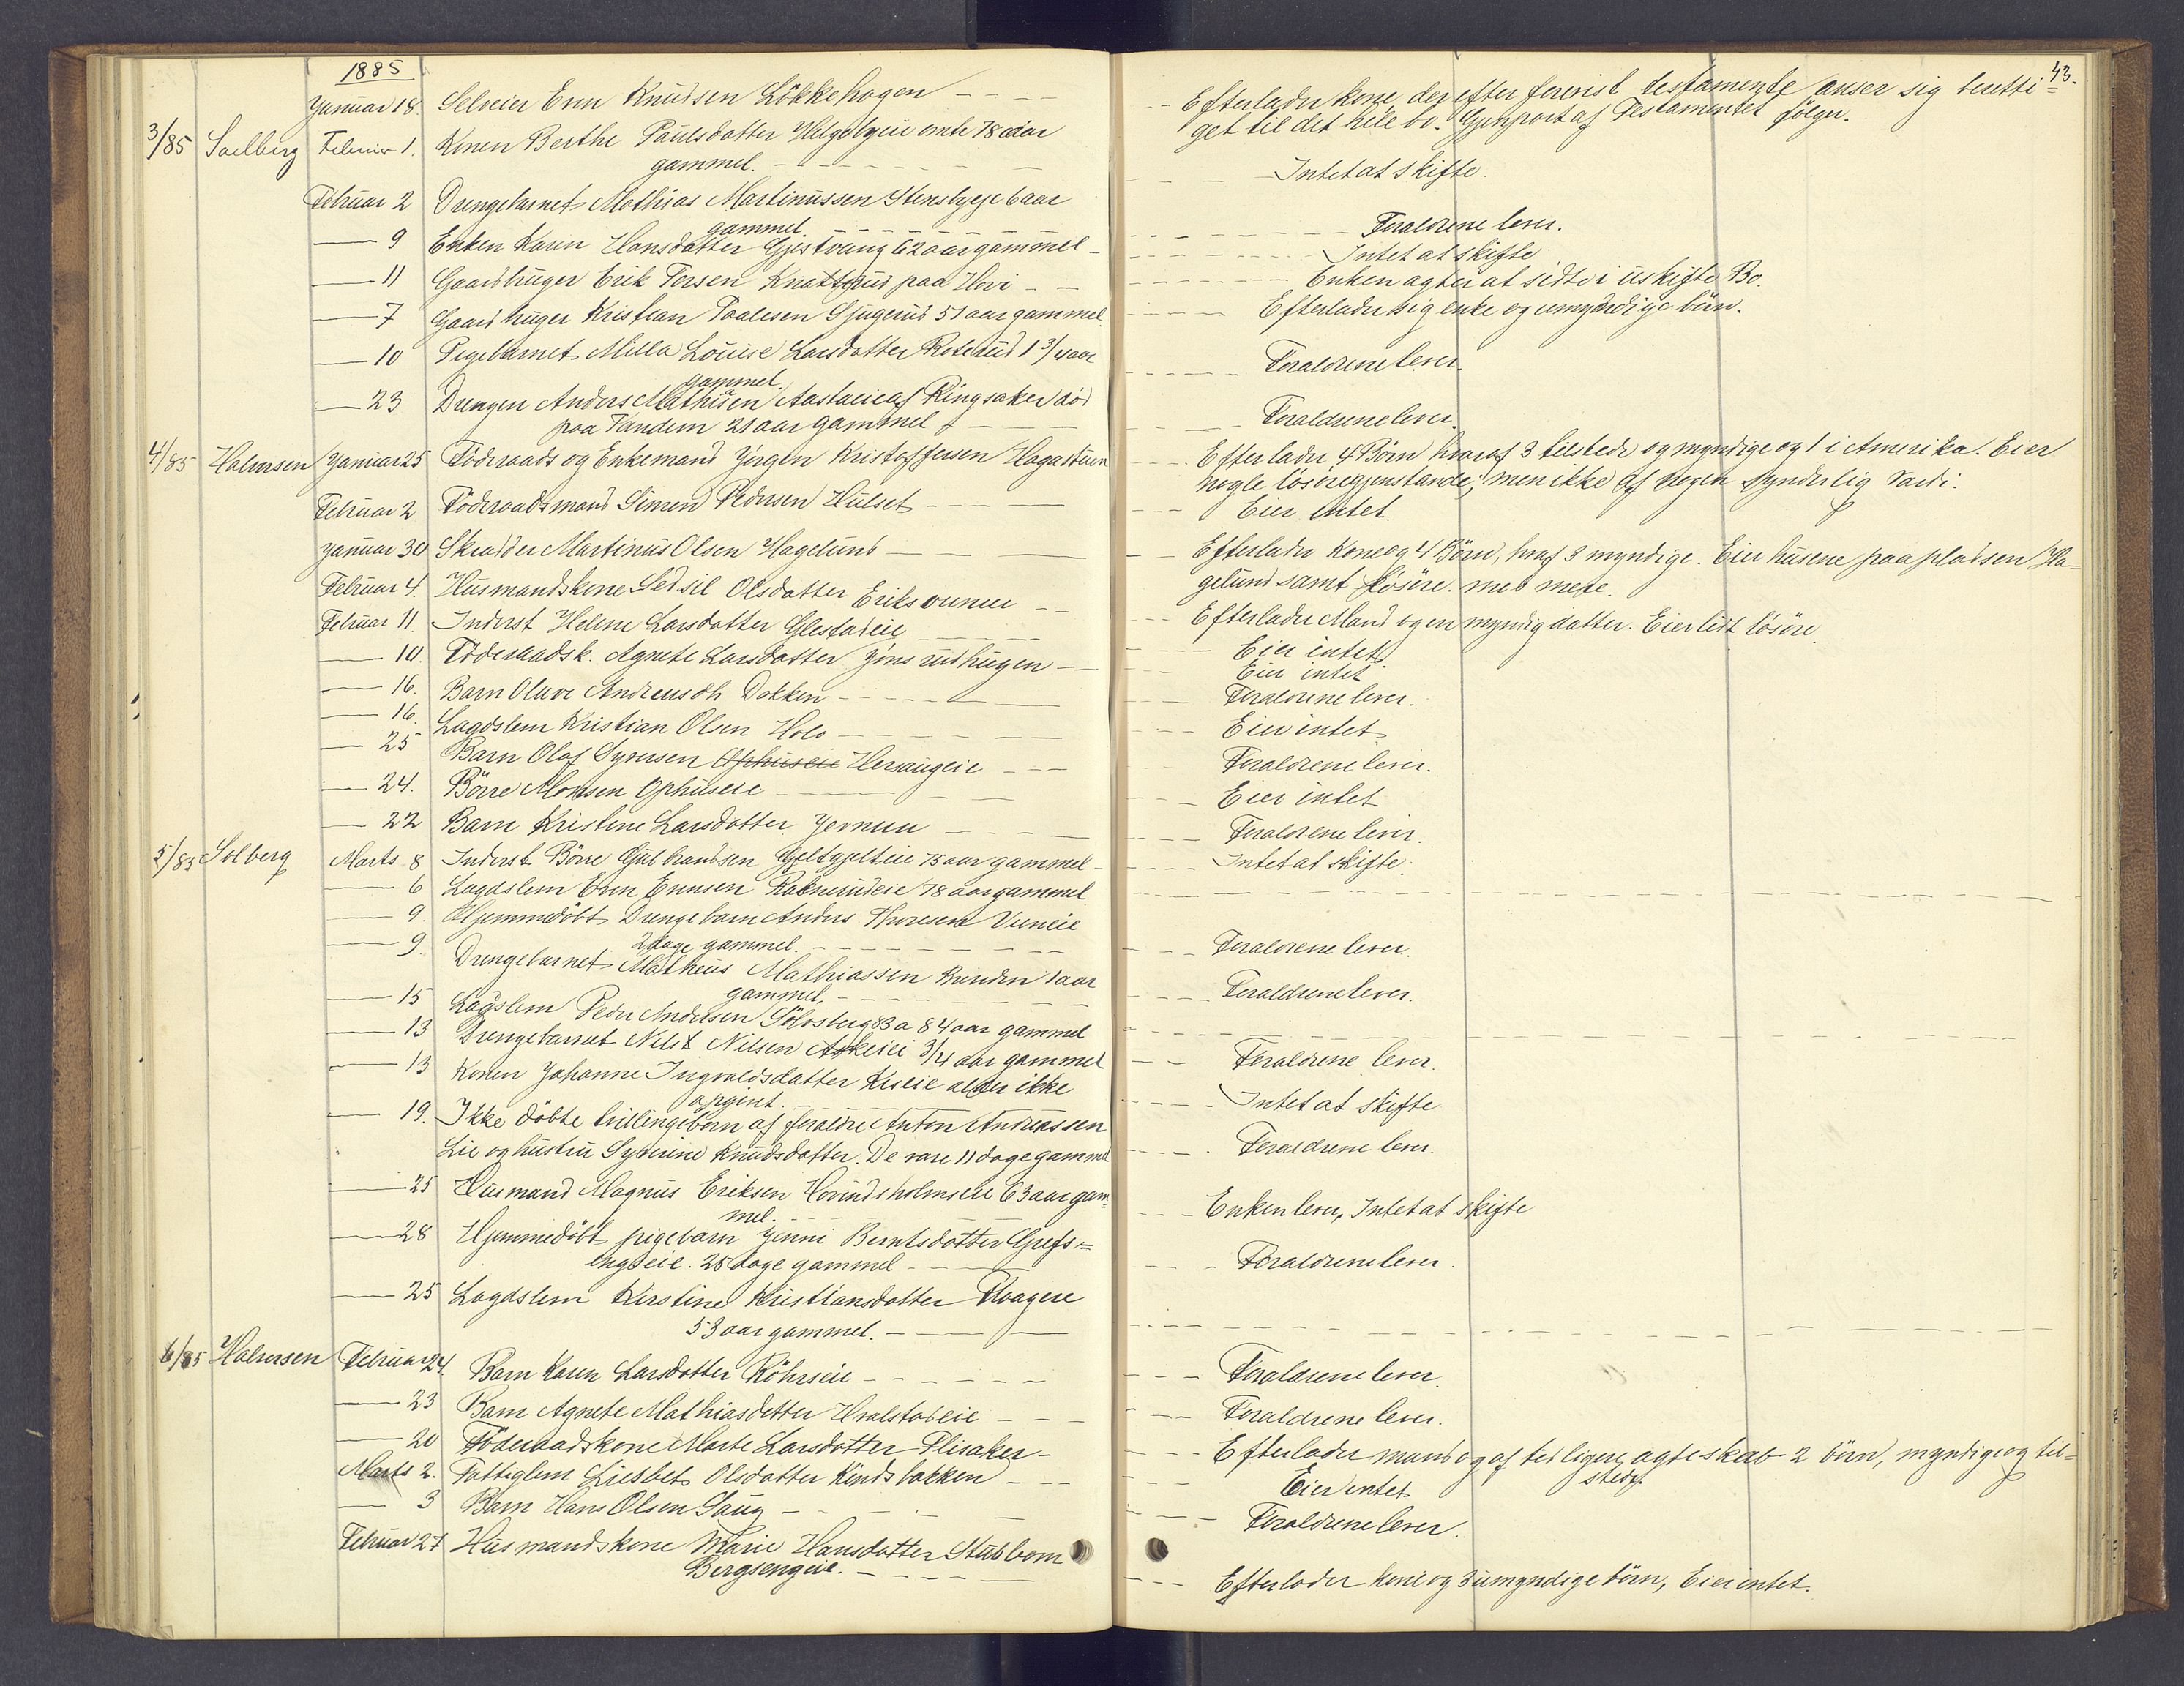 1885
43.
Januar 18. Selveier Enn Knudsen Lökkehagen
Efterlader kone, der efter forevist testamente anser sig beretti-
get til det hele bo. Gjenpart af Testamentet følger.
3/85 Solberg Februar 1. Konen Berthe Paulsdatter Helgebyeie omtr 78 aar
gammel. Intet at skifte.
Februar 2 Drengebarnet Mathias Martinussen Stensbyeje 6 aar
gammel. Foraldrene lever.
9 Enken Karen Hansdatter Gjestvang 62 aar gammel
Intet at skifte
11 Gaardbruger Erik Torsen Knattprud paa Hovi
Enken agter at sidde i uskiftet Bo.
7 Gaardbruger Kristian Paalesen Sjugerud 51 aar gammel
Efterlader sig enke og umyndige börn.
10 Pigebarnet Milla Louise Larsdatter Roterud 1 3/4 aar
gammel. Foraldrene lever.
23 Drengen Anders Mathisen Aastaeie af Ringsaker död
paa Tandem 21 aar gammel Foraldrene lever.
4/85 Halvorsen Januar 25 Föderaads og Enkemand Jörgen Kristoffersen Hagastuen
Efterlader 4 Börn hvoraf 3 tilstede og myndige og 1 i Amerika. Eier
nogle lösöregjenstande, men ikke af nogen synderlig Værdi.
Februar 2 Föderaadsmand Simen Pedersen Hulset
Eier intet.
Januar 30 Skrædder Martinus Olsen Hagelund
Efterlader Kone og 4 Börn, hvaf 3 myndige. Eier husene paa pladsen Ha-
gelund samt lösöre. med mere.
Februar 4. Husmandskone Sedsil Olsdatter Eriksrunen
Efterlader Mand og en myndig datter. Eier lidt lösöre
Februar 11. Inderst Helene Larsdatter Glestadeie
Eier intet.
10. Föderaadsk. Agnete Larsdatter Jönsrudhugen
Eier intet
16. Barn Olave Andreasdtr Dakken
Foraldrene lever.
16. Lagdslem Kristian Olsen Holo
Eier intet
25 Barn Olaf Syversen Ophuseie Hersaugeie
Foraldrene lever.
24. Börre Monsen Ophuseie
Eier intet
22 Barn Kristine Larsdatter Jevnen
Foraldrene lever.
5/85 Solberg Marts 8 Inderst Börre Gulbrandsen Gjeltgjelteie 75 aar gammel
Intet at skifte.
6 Lagdslem Enn Ennsen Rabnerudeie 78 aar gammel
9. Hjemmedöbt Drengebarn Anders Thoresen Vieneie
2 dage gammel. Foraldrene lever.
9 Drengebarnet Matheus Mathiassen Kvanden 1 aar
gammel. Foraldrene lever.
15 Lagslem Peder Andersen Sölvsberg 83 a 84 aar gammel
13 Drengebarnet Nils Nilsen Askeiei 3/4 aar gammel
Foraldrene lever.
13 Konen Johanne Ingvaldsdatter Kiseie alder ikke
opgivet. Intet at skifte
19. Ikke döbte tvillingebörn af foraldre Anton Andreassen
Lie og hustru Syverine Knudsdatter. De vare 11 dage gammel
Foraldrene lever.
25 Husmand Magnus Eriksen Hovindsholmseie 63 aar gam-
mel. Enken lever, Intet at skifte
28 Hjemmedöbt pigebarn Jenni Berntsdatter Grefs-
engseie. 25 dage gammel Foraldrene lever.
25 Lagdslem Kirstine Kristiansdatter Thoagere
53 aar gammel.
6/85 Halvorsen Februar 24. Barn Karen Larsdatter Röhrseie
Foraldrene lever.
23 Barn Agnete Mathiasdatter Hvalstadeie
Foraldrene lever.
20 Föderaadskone Marte Larsdatter Plisaker
Efterlader mand og af tidligere agteskab 2 börn, myndige og til-
stede.
Marts 2. Fattiglem Liesbet Olsdatter Kindsbakken
Eier intet
3 Barn Hans Olsen Saug
Foraldrene lever.
Februar 27 Husmandskone Marie Hansdatter Stubbom
Bergsengeie.
Efterlader kone og 3 umyndige börn, Eier intet.